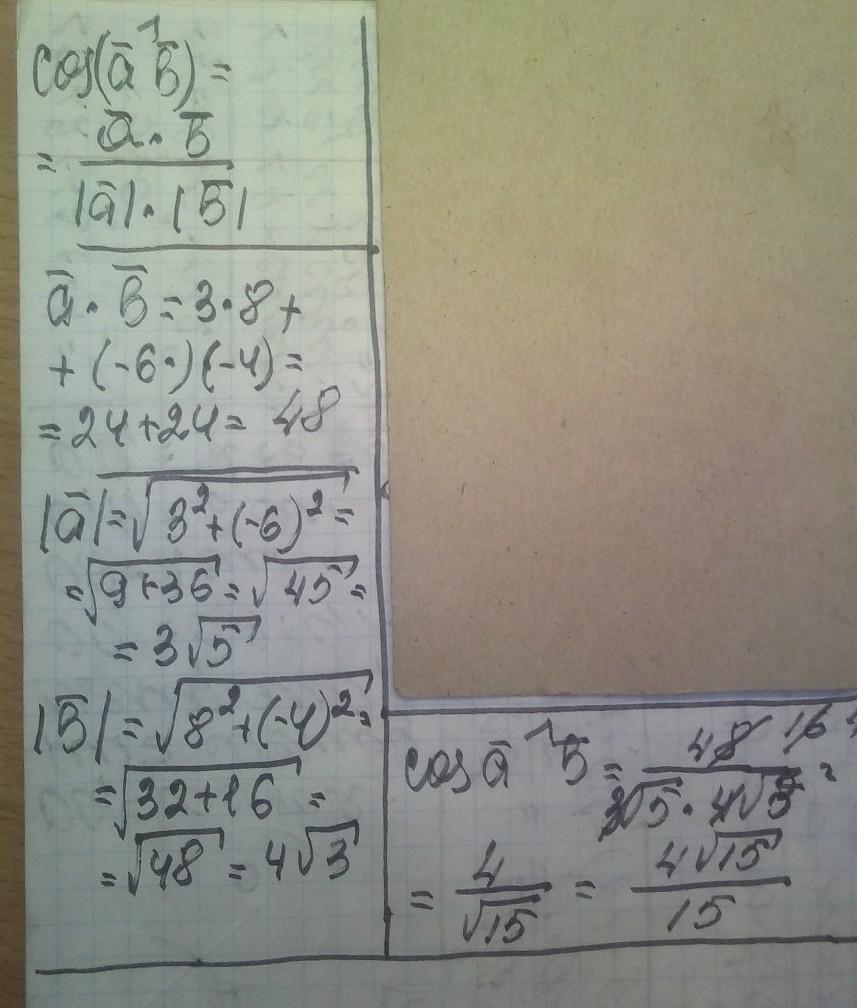 cos(a̅ ^ b̅) =
= a̅ · b̅ / |a̅| · |b̅|
a̅ · b̅ = 3·8 +
+ (-6·)(-4) =
= 24+24 = 48
|a̅| = √(3²+(-6)²) =
= √(9+36) = √45 =
= 3√5
|b̅| = √(8²+(-4)²) =
= √(32+16) =
= √48 = 4√3
cos a̅ ^ b̅ = 48 16 4 / 3√5 · 4√3 =
= 4/√15 = 4√15/15